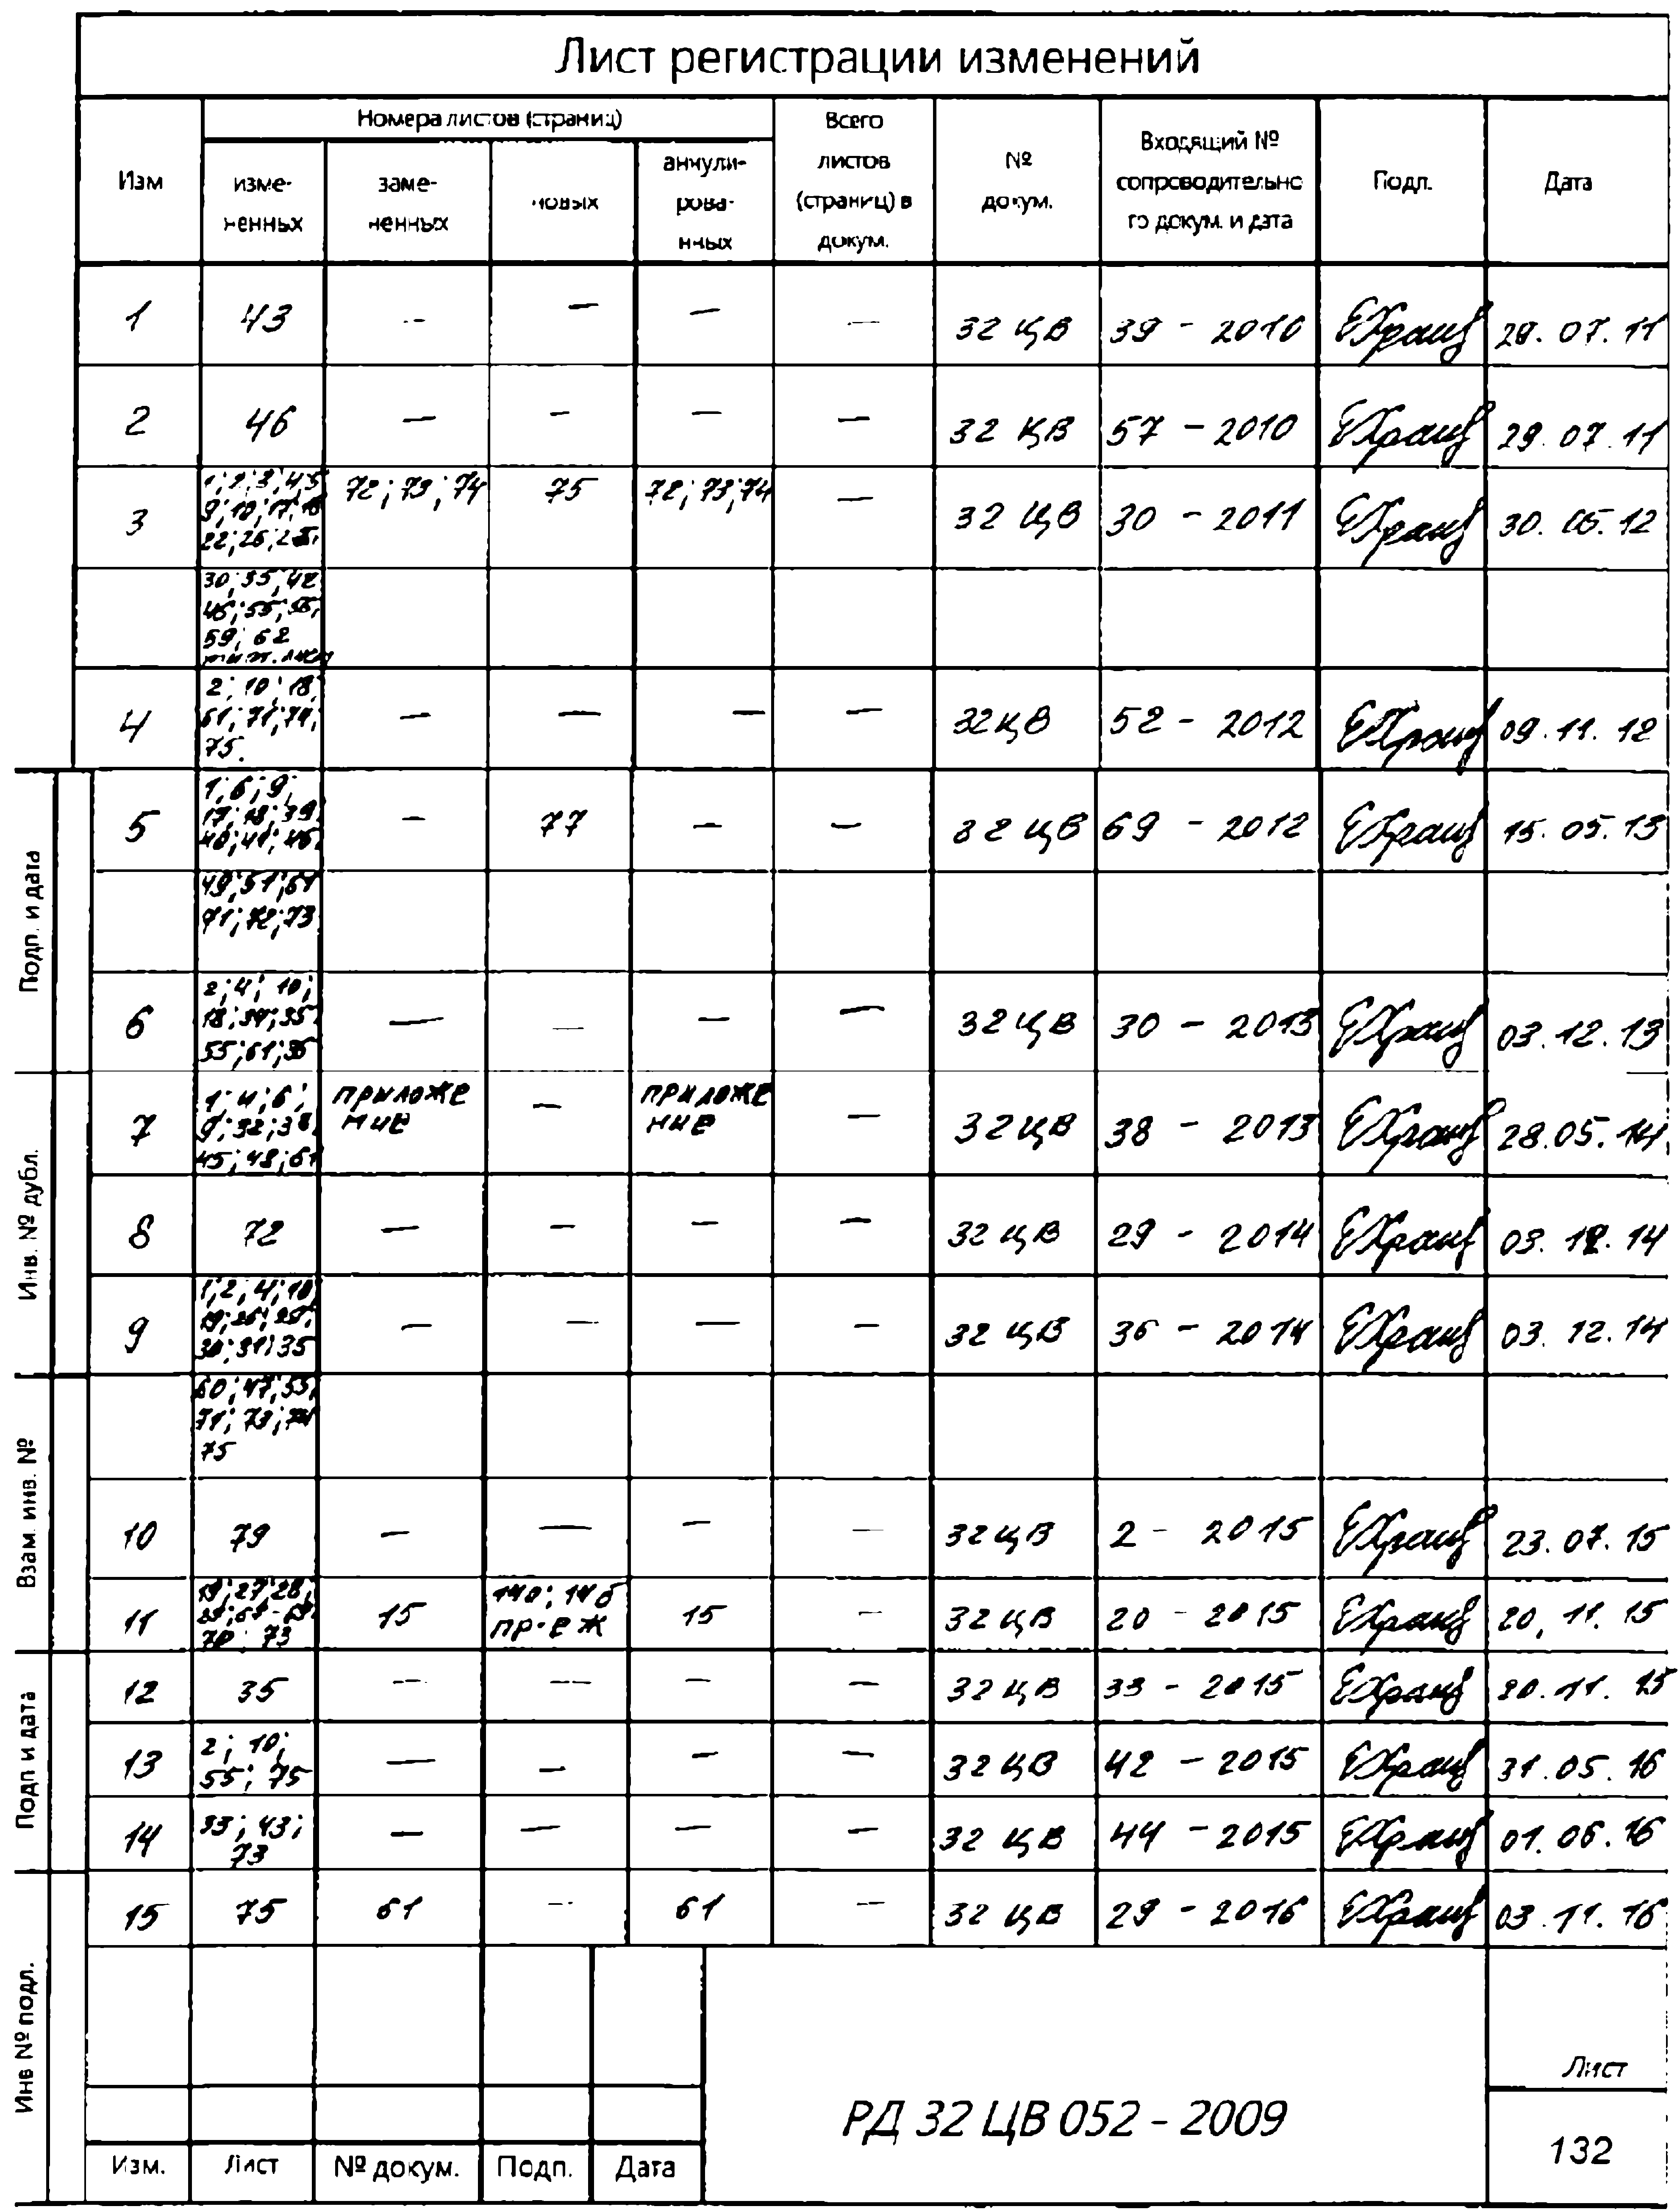 Лист регистрации изменений
Изм
Номера листов (страниц)
изме-
ненных
заме-
ненных
новых
аннули-
рова-
нных
Всего
листов
(страниц) в
докум.
№
докум.
Входящий №
сопроводительно
го докум. и дата
Подп.
Дата
1 43 – – – – 32 ЦВ 39 - 2010 29.07.11
2 46 – – – – 32 ЦВ 57 - 2010 29.07.11
3 72; 73; 74 75 72; 73; 74 – 32 ЦВ 30 - 2011 30.05.12
1; 2; 3; 4; 5
9; 10; 17; 18
22; 26;
30; 35; 42
46; 55; 56;
59; 62
4 – – – – 32 ЦВ 52 - 2012 09.11.12
2; 10; 18;
61; 71; 74;
75.
5 – 77 – – 32 ЦВ 69 - 2012 15.05.13
1; 6; 9;
17; 18; 39
40; 41; 46
49; 51; 61
71; 72; 73
6 – – – – 32 ЦВ 30 - 2013 03.12.13
2; 4; 10;
18; 34; 35
55; 61;
7 приложе
ние – приложе
ние – 32 ЦВ 38 - 2013 28.05.14
1; 4; 6;
9; 32; 38
45; 48; 61
8 72 – – – – 32 ЦВ 29 - 2014 03.12.14
9 – – – – 32 ЦВ 36 - 2014 03.12.14
1; 2; 4; 10
19; 26; 29;
30; 31; 35
60; 47; 55;
71; 73; 74
75
10 79 – – – – 32 ЦВ 2 - 2015 23.07.15
11 15 14а; 14б
пр. Е Ж 15 – 32 ЦВ 20 - 2015 20.11.15
19; 27; 28;
70; 73
12 35 – – – – 32 ЦВ 33 - 2015 20.11.15
13 2; 10;
55; 75 – – – – 32 ЦВ 42 - 2015 31.05.16
14 33; 43;
73 – – – – 32 ЦВ 44 - 2015 01.06.16
15 75 61 – 61 – 32 ЦВ 29 - 2016 03.11.16
Подп. и дата
Инв. № дубл.
Взам. инв. №
Подп и дата
Инв № подл.
Изм. Лист № докум. Подп. Дата
РД 32 ЦВ 052 - 2009
Лист
132